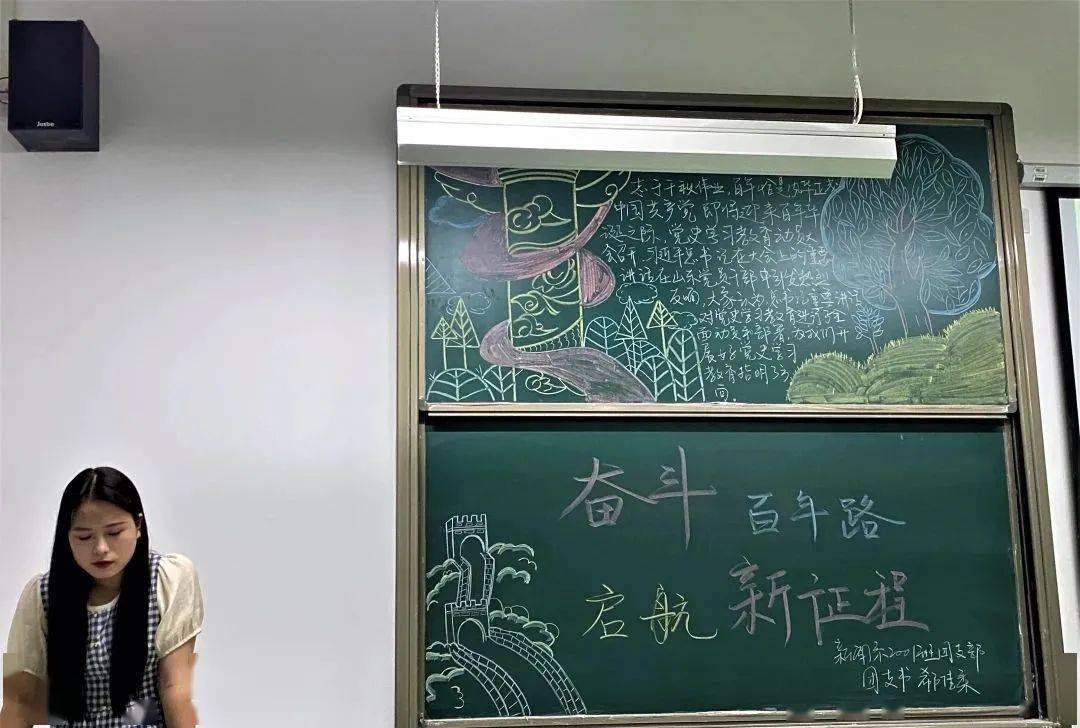 Jusbe
志于千秋伟业,百年恰是
中国共产党即将迎来百年华
诞之际,党史学习教育动员大
会召开,习近平总书记在大会上的重要
讲话在山东党员干部中引发热烈
反响,大家认为总书记重要讲话
对党史学习教育进行了全
面动员和部署,为我们开
展好党史学习
教育指明了方
向。
奋斗 百年路
启航 新征程
新闻系2001班团支部
团支书
3